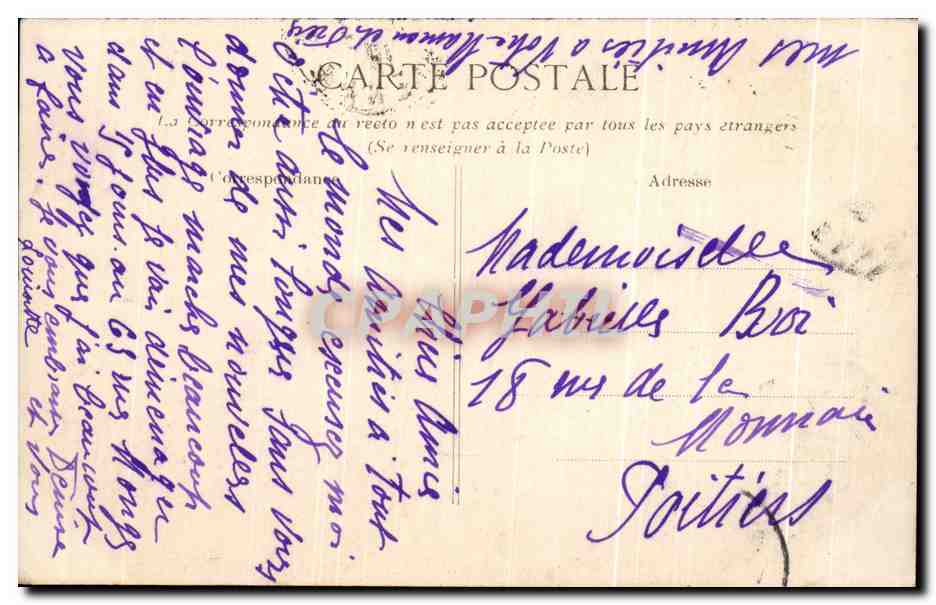 CARTE POSTALE
La Correspondance au recto n'est pas acceptée par tous les pays étrangers
(Se renseigner à la Poste)
Correspondance
Adresse
Mademoiselle
Gabrielle
18 rue de la
Monnaie
Poitiers
mes Amitiés a Votre Maman et
Mes Amitiés a tout
le monde excuser moi
d'être aussi longue sans vous
donner de mes nouvelles
l'ouvrage marche beaucoup
et en plus je vai démenager
dans 15 jours. au 63 rue Monge
vous voyez que j'ai beaucoup
a faire. Je vous embrasse Denise
et vous
Louisette
CPAPHIL